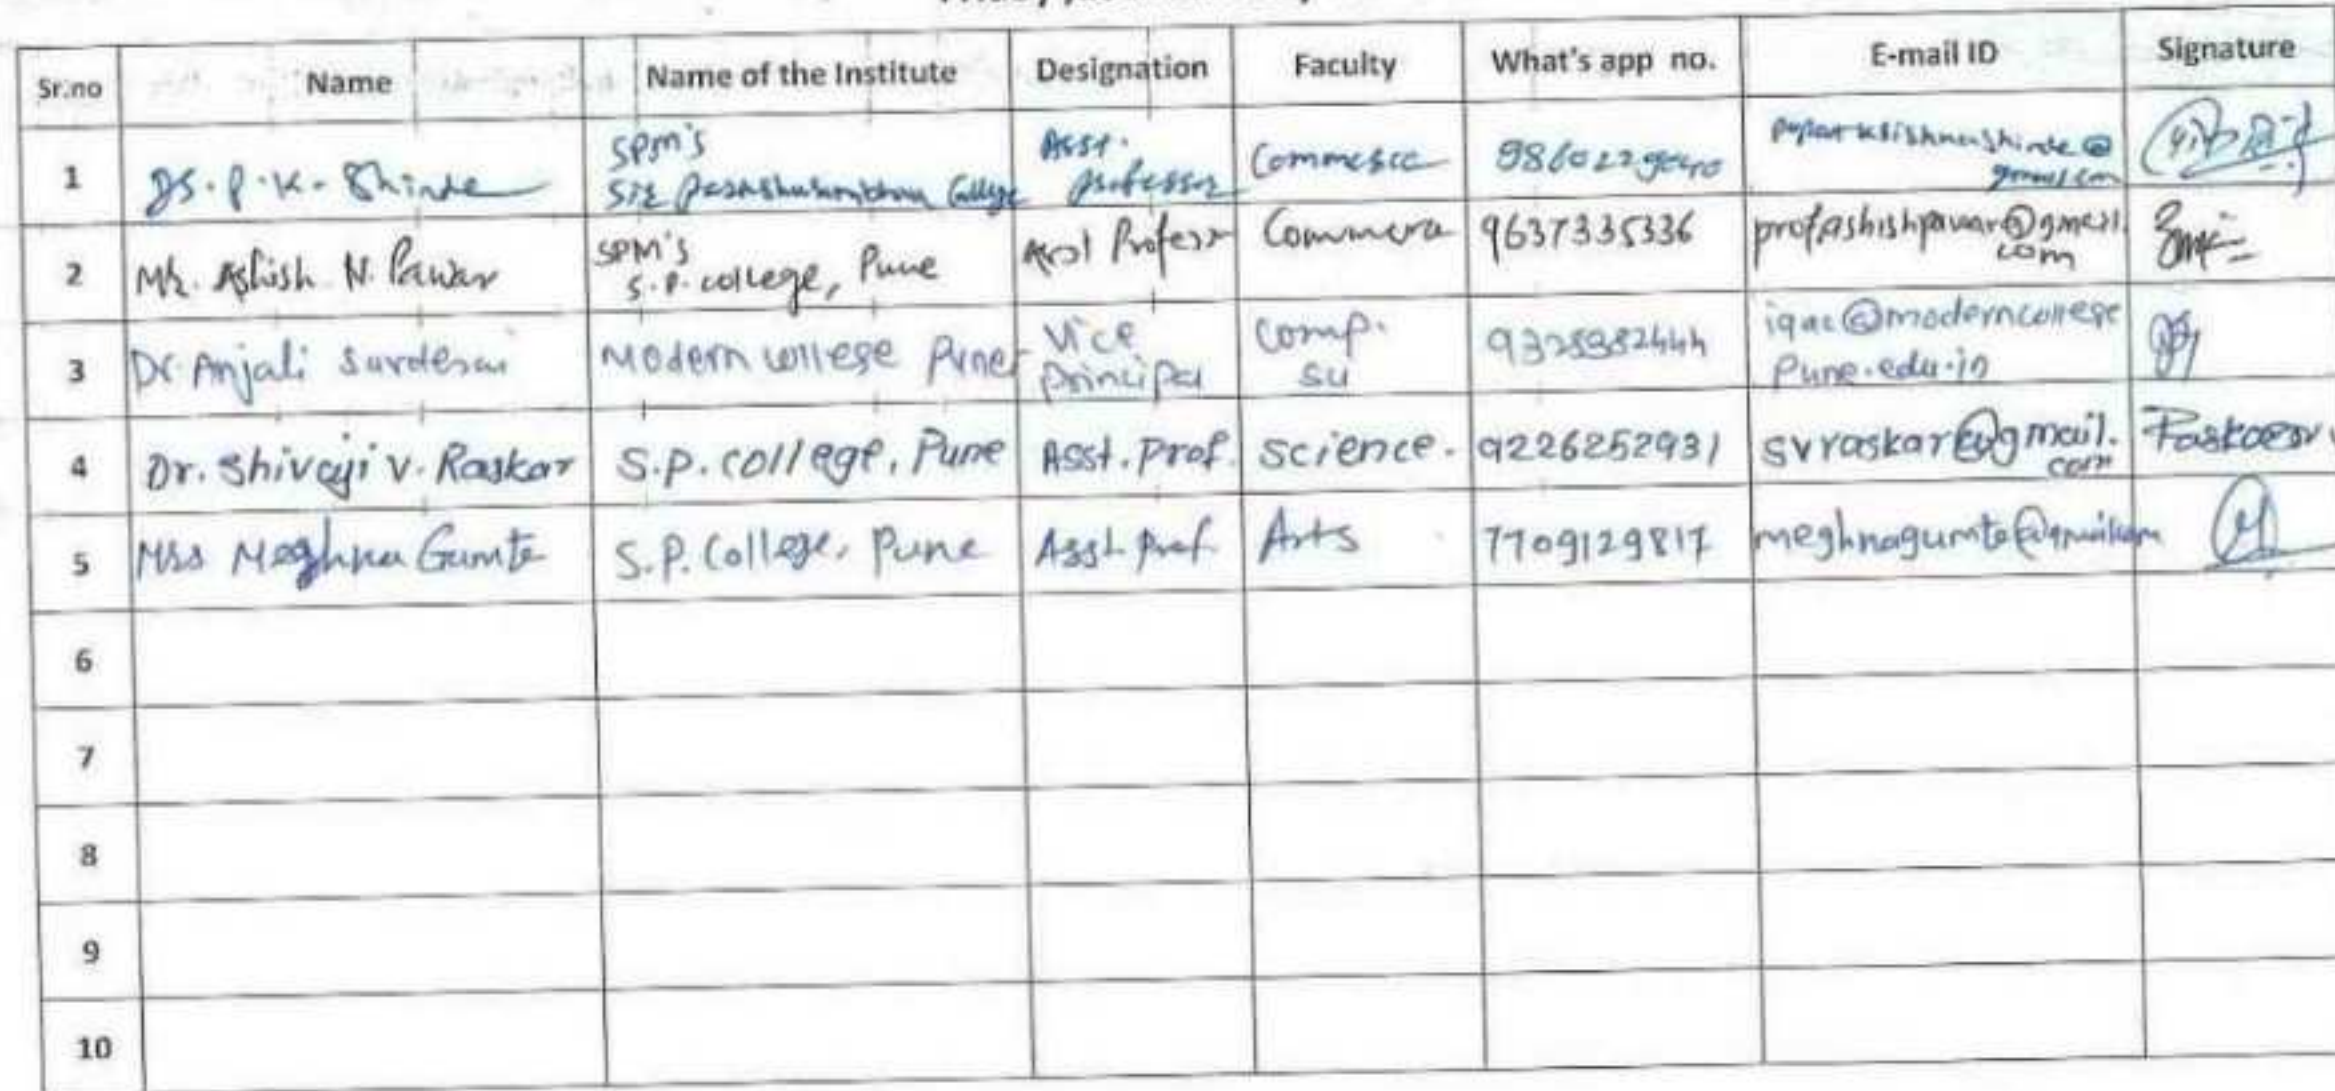 Sr.no Name Name of the Institute Designation Faculty What's app no. E-mail ID Signature
1 Dr. P. K. Shinde SPM's Sir Parashurambhau College Asst. professor Commerce
2 Mr. Ashish N. Pawar SPM's S.P. college, Pune Asst Professor Commerce 9637335336 profashishpawar@gmail.com
3 Dr Anjali Sardesai Modern college Pune Vice principal Comp. Sci iqac@moderncollegepune.edu.in
4 Dr. Shivaji V. Raskar S.P. college, Pune Asst. Prof. Science. 9226252931 svraskar@gmail.com
5 Mrs Meghna Gumte S.P. College, Pune Asst. Prof. Arts 7709129817 meghnagumte@gmail.com
6
7
8
9
10